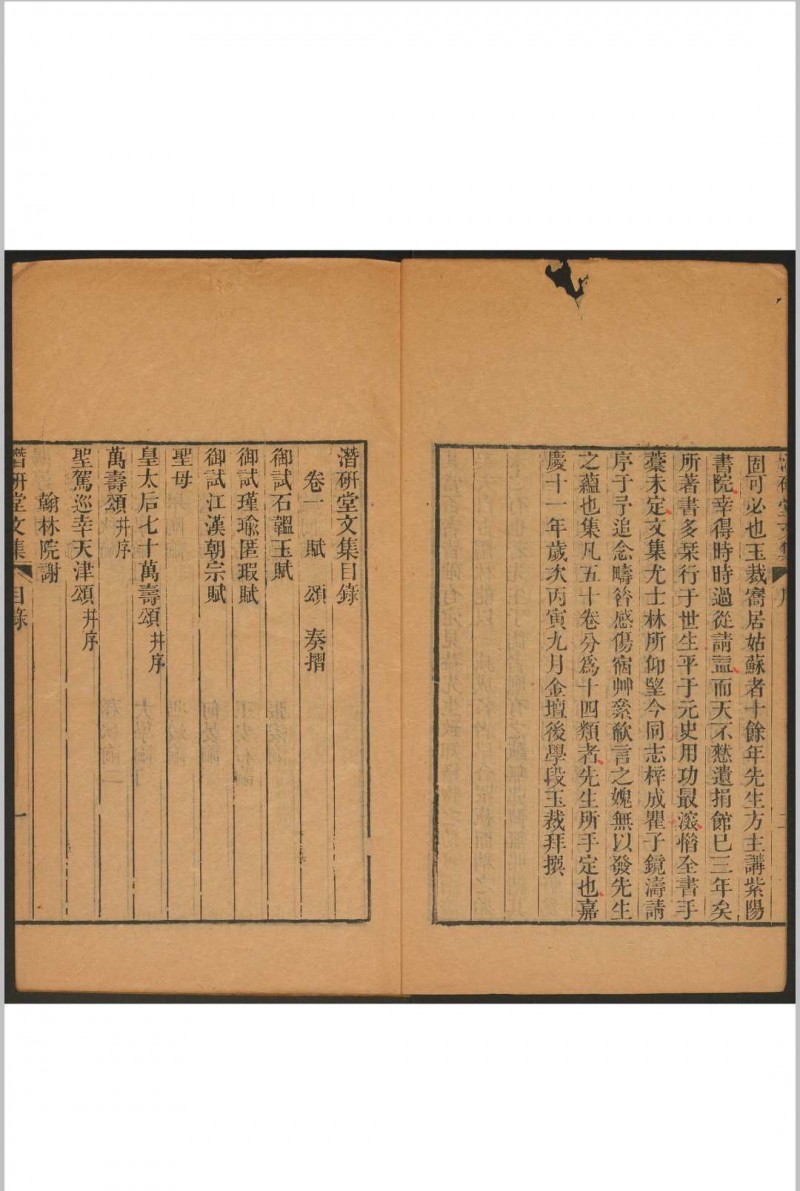 固可必也玉裁寄居姑蘇者十餘年先生方主講紫陽
書院幸得時時過從請益而天不憖遺捐館巳三年矣
所著書多栞行于世生平于元史用功最深惜全書手
藁未定文集尤士林所仰望今同志梓成瞿子鏡濤請
序于予追念疇昝感傷宿艸絫欷言之媿無以發先生
之蘊也集凡五十卷分爲十四類者先生所手定也嘉
慶十一年歲次丙寅九月金壇後學段玉裁拜撰
潛硏堂文集目錄
卷一 賦 頌 奏摺
御試石韞玉賦
御試瑾瑜匿瑕賦
御試江漢朝宗賦
聖母
皇太后七十萬壽頌 幷序
萬壽頌 幷序
聖駕巡幸天津頌 幷序
翰林院謝
潛硏堂文集 目錄 一